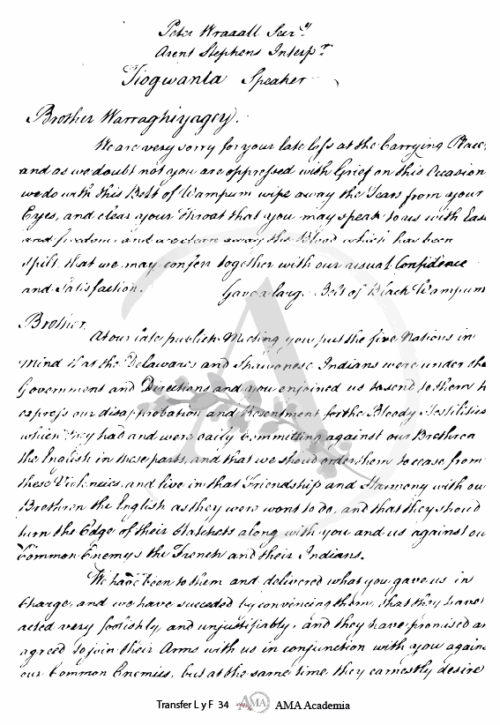 Peter Wraxall Secry
Arent Stephens Interpr
Tiogwanta Speaker
Brother Warraghiyagey.
We are very sorry for your late loss at the Carrying Place,
and as we doubt not you are oppressed with Grief on this Occasion
we do with this Belt of Wampum wipe away the Tears from your
Eyes, and clear your Throat that you may speak to us with Ease
and freedom, and we clean away the Blood which has been
spilt, that we may confer together with our usual Confidence
and Satisfaction. Gave a large Belt of Black Wampum
Brother.
At our late publick Meeting you put the five Nations in
mind that the Delawares and Shawonese Indians were under the
Government and Directions and you enjoined us to send to them to
express our disapprobation and Resentment for the Bloody Hostilities
which they had and were daily Committing against our Brethren
the English in these parts, and that we should order them to cease from
these Violencies, and live in that Friendship and Harmony with our
Brethren the English as they were wont to do, and that they should
turn the Edge of their Hatchets along with you and us against our
Common Enemys the French and their Indians.
We have been to them and delivered what you gave us in
Charge, and we have succeded by convincing them, that they have
acted very foolishly and unjustifiably, and they have promised and
agreed to join their Arms with us in conjunction with you against
our Common Enemies, but at the same time they earnestly desire
Transfer L y F 34 AMA AMA Academia